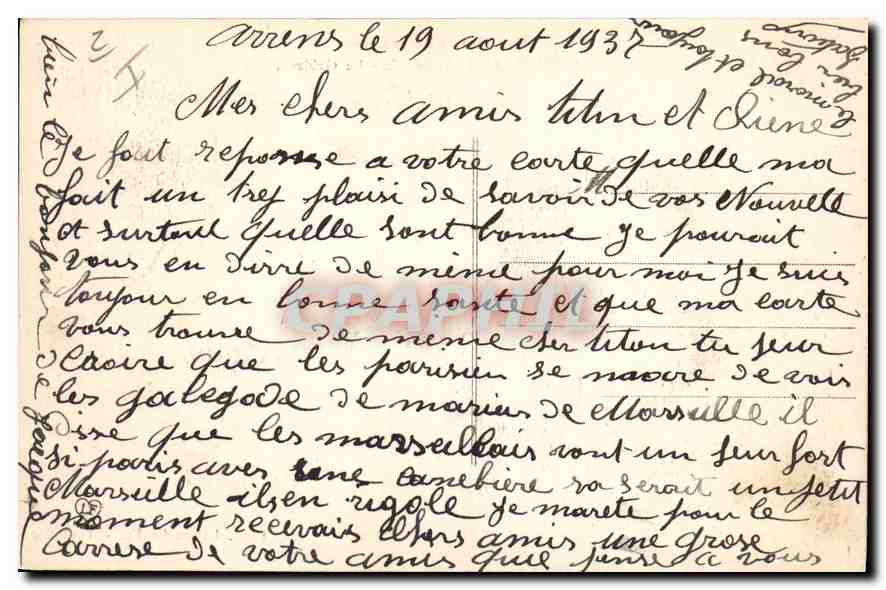 2
Arrens le 19 aout 1937
Mes chers amis titon et
Je fait reponse a votre carte quelle ma
fait un trej plaisi de savoir de vos Nouvelle
et surtout quelle sont bonne je pourait
vous en dirre de même pour moi je suis
toujour en bonne sante et que ma carte
vous trouve de meme cher titon tu seur
croire que les parisien se marre de vois
les galegade de marius de Marseille il
disse que les marseillais vont un seur fort
si paris aves une canebière sa serait un petit
Marseille ilsen rigole je marete pour le
moment recevais chers amis une grose
carrese de votre amis quie pense a vous
bien le bonjour de
et toujour
bien
CPAPHIL